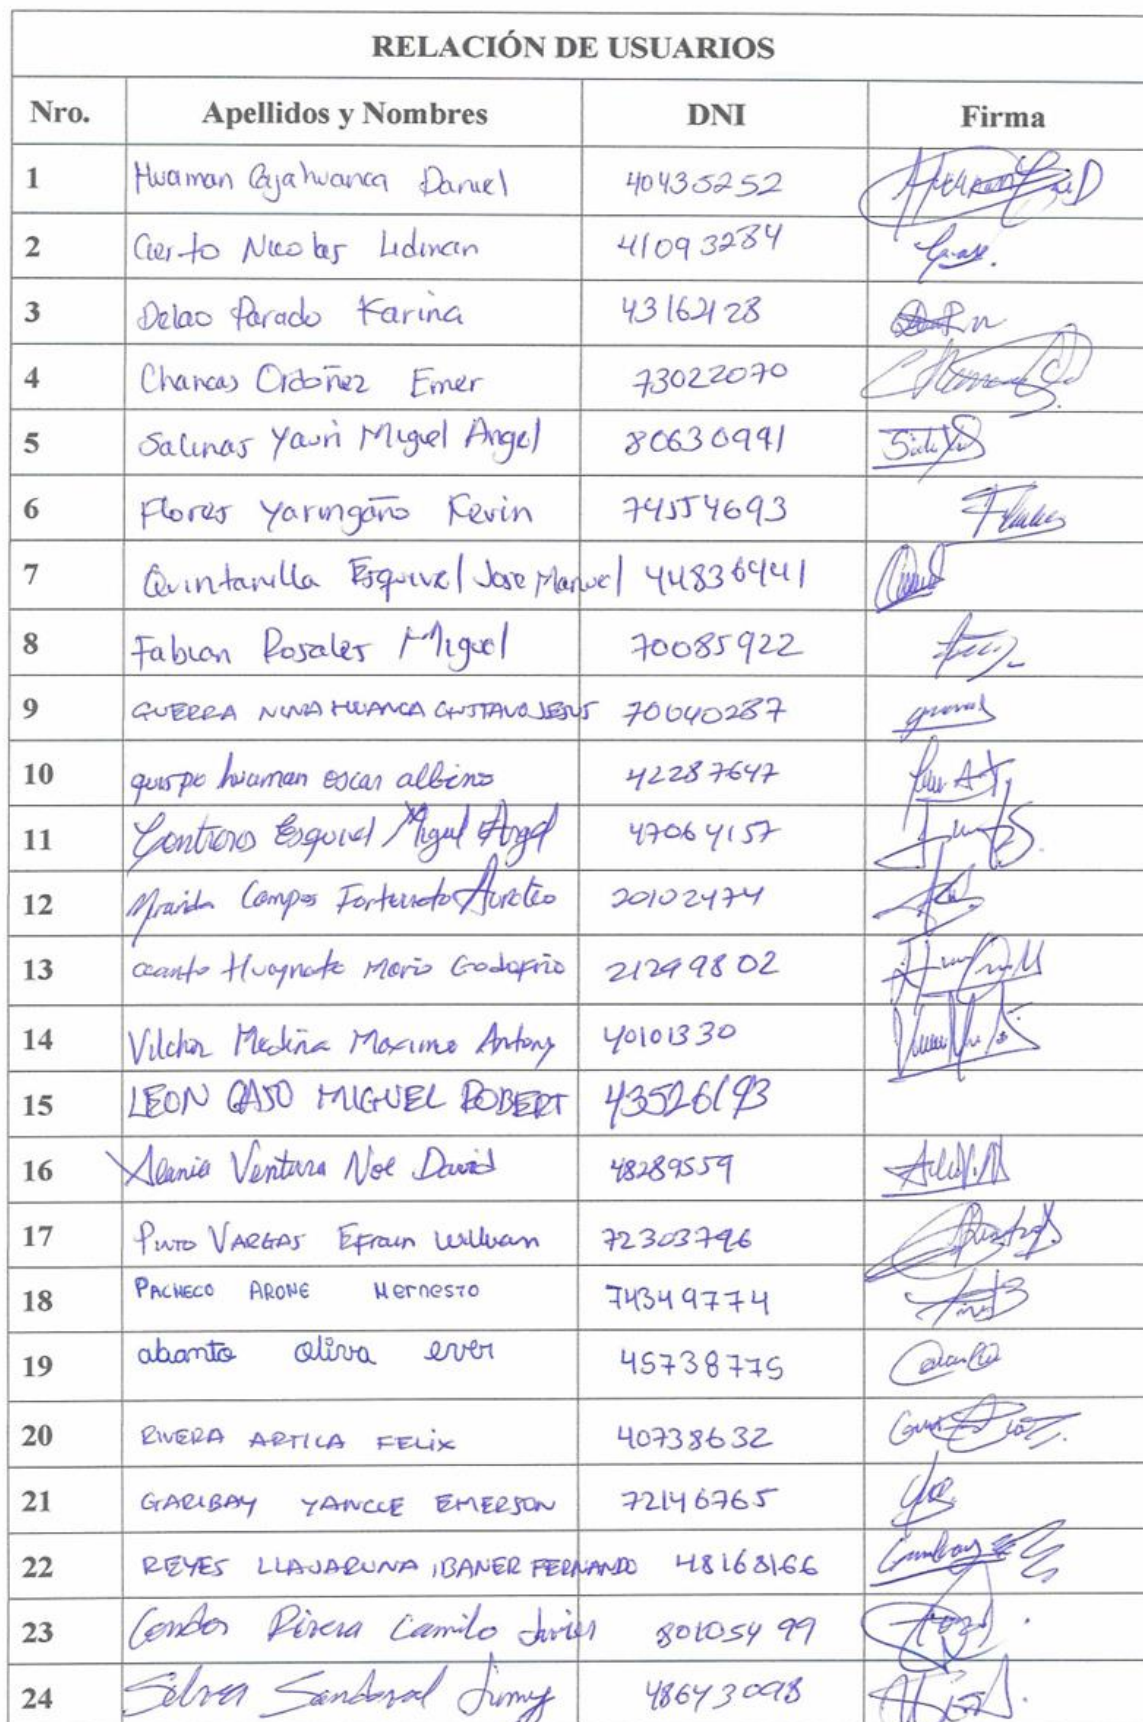 RELACIÓN DE USUARIOS
Nro. Apellidos y Nombres DNI Firma
1 Huaman Cajahuanca Daniel 40435252
2 Cierto Nicolas 41093284
3 Delao Parado Karina 43162128
4 Chancas Ordoñez Emer 73022070
5 Salinas Yauri Miguel Angel 80630991
6 Flores Yaringaño Kevin 74554693
7 Quintanilla Esquivel Jose Manuel 44836441
8 Fabian Rosales Miguel 70085922
9 GUERRA NINAHUANCA GUSTAVO JESUS 70040287
10 quispe huaman oscar albino 42287647
11 Contreras Esquivel Miguel Angel 47064157
12 Miranda Campos Fortunato 20102474
13 Huaynate Mario Godofrio 21299802
14 Vilchez Medina Maximo Antony 40101330
15 LEON GASO MIGUEL ROBERT 43526193
16 Alania Ventura Noe David 48289559
17 PINTO VARGAS Efrain William 72303796
18 PACHECO ARONE Hernesto 74349774
19 abanto oliva ever 45738775
20 RIVERA ARTICA FELIX 40738632
21 GARIBAY YANCCE EMERSON 72146765
22 REYES LLAJARUNA IBANER FERNANDO 48168166
23 Condor Rivera Camilo Javier 80105499
24 Silver Sandoval Jimmy